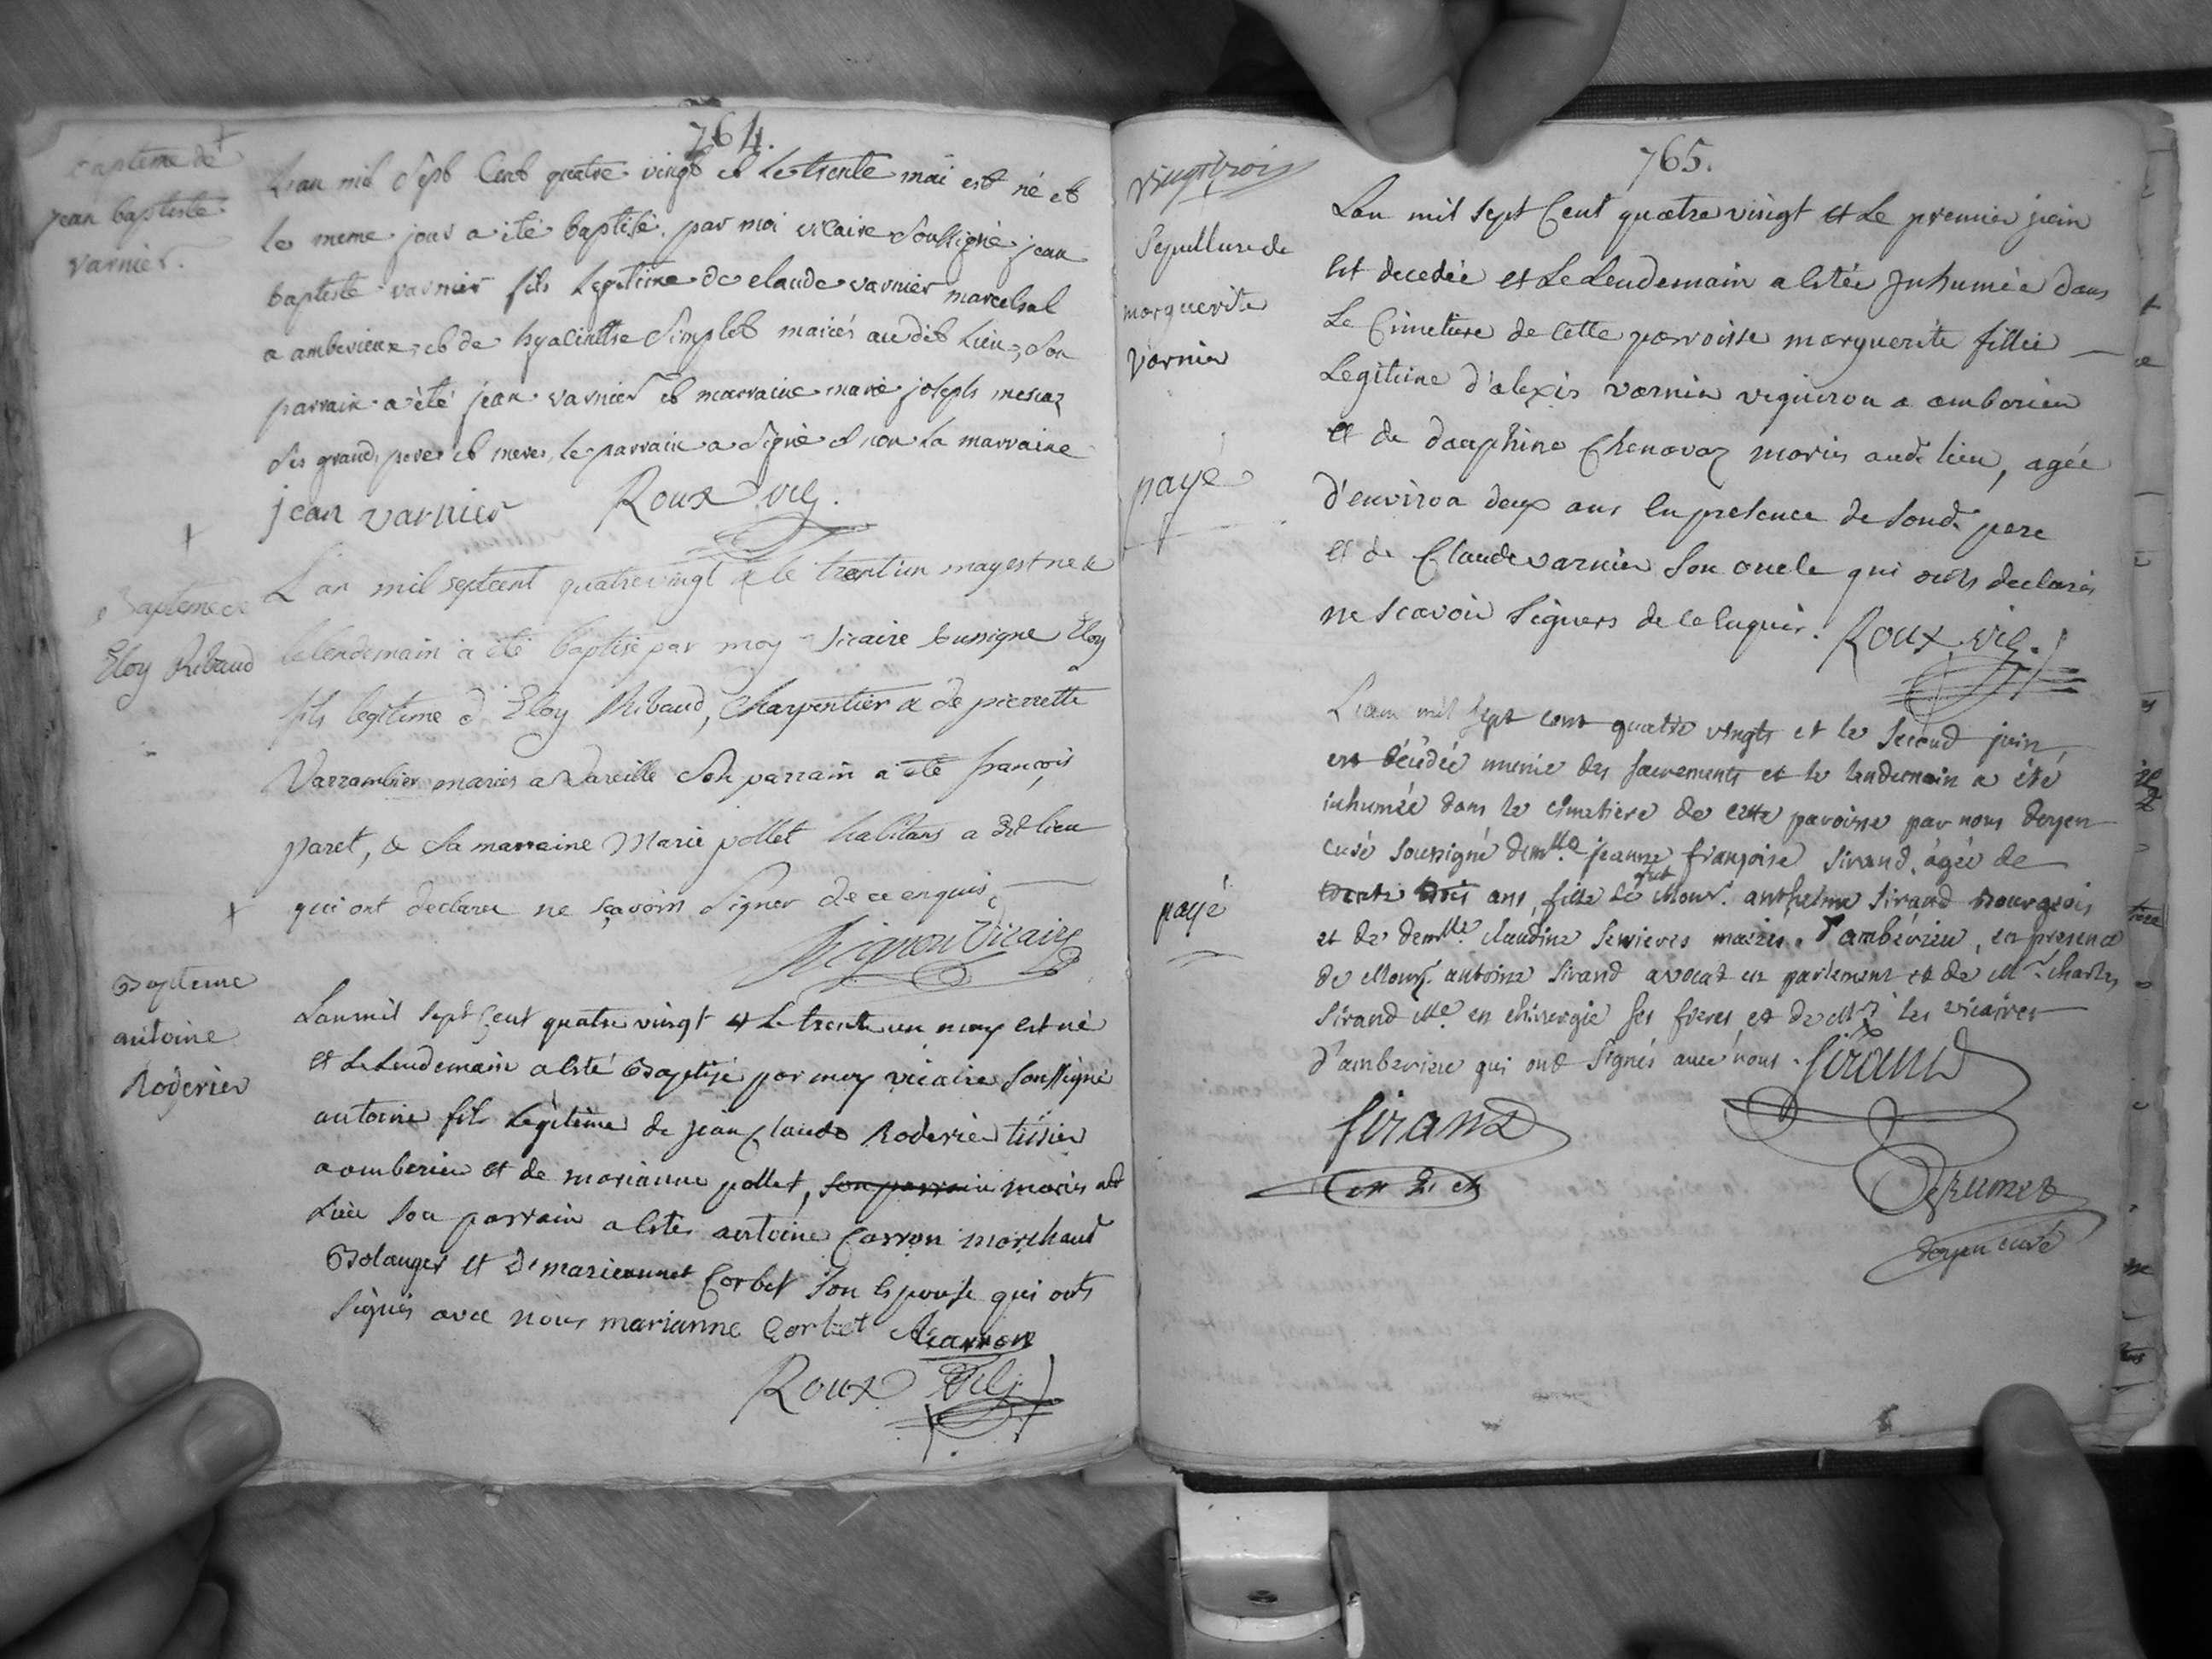 764.
Bapteme de
jean baptiste
varnier.
L'an mil sept Cent quatre vingt et le trente mai est né et
le meme jour a été baptisé par moi vicaire soussigné jean
baptiste varnier fils legitime de claude varnier marechal
a amberieux, et de hyacinthe Simplet mariés au dit lieu, son
parrain a été jean varnier et marraine marie joseph
ses grands peres et meres, le parrain a signé et non la marraine
jean varnier Roux vic.
Bapteme de
Eloy Ribaud
L'an mil sept cent quatre vingt & le trent'un may est né &
le lendemain a été baptisé par moy vicaire soussigné Eloy
fils legitime d'Eloy Ribaud, Charpentier & de pierrette
Varrambier mariés a Vareille son parrain a été françois
paret, & sa marraine Marie pollet habitans a dit lieu
qui ont declaré ne sçavoir signer de ce enquis
Vicaire
Bapteme
antoine
Roderier
L'an mil sept Cent quatre vingt et le trente un may est né
et le lendemain a esté Baptisé par moy vicaire soussigné
antoine fils legitime de jean Claude Roderier tissier
a amberieu et de marianne pollet, son parrain mariés aud
lieu son parrain a esté antoine Carron marchand
Bolanger et De marieannet Corbet son espouse qui onts
signés avec nous marianne Corbet Acarron
Roux Vic.
765.
vingt trois
Sepulture de
marguerite
varnier
payé
L'an mil sept Cent quatre vingt et le premier juin
est decedée et le lendemain a estée Inhumée dans
le Cimetiere de cette parroisse marguerite fillie
legitime d'alexis varnier vigneron a amberieu
et de dauphine Chenavaz mariés aud. lieu, agée
d'environ deux ans en presence de sond. pere
et de Claude varnier son oncle qui onts declarés
ne scavoir signers de ce enquis. Roux vic.
payé
L'an mil sept cent quatre vingts et le second juin,
est décédée munie des sacrements et le lendemain a été
inhumée dans le cimetiere de cette paroisse par nous doyen
curé soussigné demlle jeanne françoise sirand, âgée de
trente trois ans, fille de Monsr. anthelme sirand Bourgeois
et de demlle claudine mariés d'ambérieu, en presence
de Monsr. antoine sirand avocat en parlement et de Mr. charles
sirand Me. en chirurgie ses freres et de Mrs. les vicaires
d'amberieu qui ont signés avec nous. Sirand
Sirand
derumet
doyen curé